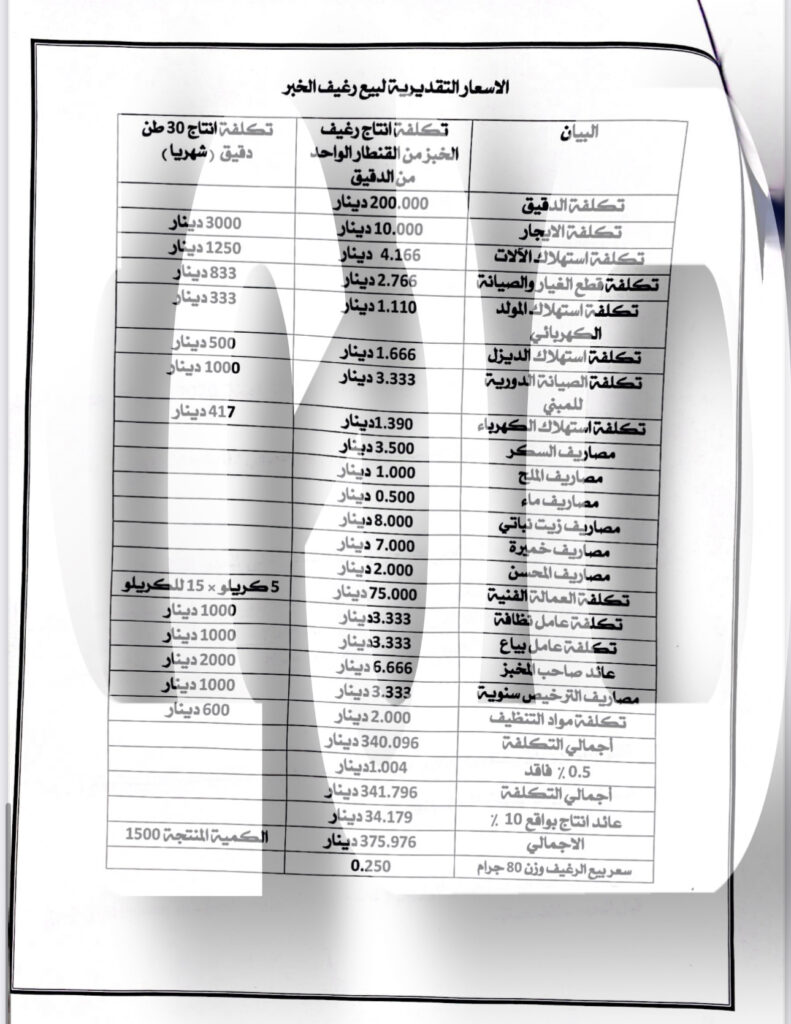 الاسعار التقديرية لبيع رغيف الخبر
البيان | تكلفة انتاج رغيف الخبز من القنطار الواحد من الدقيق | تكلفة انتاج 30 طن دقيق (شهريا)
تكلفة الدقيق | 200.000 دينار
تكلفة الايجار | 10.000 دينار | 3000 دينار
تكلفة استهلاك الآلات | 4.166 دينار | 1250 دينار
تكلفة قطع الغيار والصيانة | 2.766 دينار | 833 دينار
تكلفة استهلاك المولد الكهربائي | 1.110 دينار | 333 دينار
تكلفة استهلاك الديزل | 1.666 دينار | 500 دينار
تكلفة الصيانة الدورية للمبني | 3.333 دينار | 1000 دينار
تكلفة استهلاك الكهرباء | 1.390 دينار | 417 دينار
مصاريف السكر | 3.500 دينار
مصاريف الملح | 1.000 دينار
مصاريف ماء | 0.500 دينار
مصاريف زيت نباتي | 8.000 دينار
مصاريف خميرة | 7.000 دينار
مصاريف المحسن | 2.000 دينار
تكلفة العمالة الفنية | 75.000 دينار | 5 كريلو × 15 للكريلو
تكلفة عامل نظافة | 3.333 دينار | 1000 دينار
تكلفة عامل بياع | 3.333 دينار | 1000 دينار
عائد صاحب المخبز | 6.666 دينار | 2000 دينار
مصاريف الترخيص سنوية | 3.333 دينار | 1000 دينار
تكلفة مواد التنظيف | 2.000 دينار | 600 دينار
أجمالي التكلفة | 340.096 دينار
0.5 ٪ فاقد | 1.004 دينار
أجمالي التكلفة | 341.796 دينار
عائد انتاج بواقع 10 ٪ | 34.179 دينار
الاجمالي | 375.976 دينار | الكمية المنتجة 1500
سعر بيع الرغيف وزن 80 جرام | 0.250